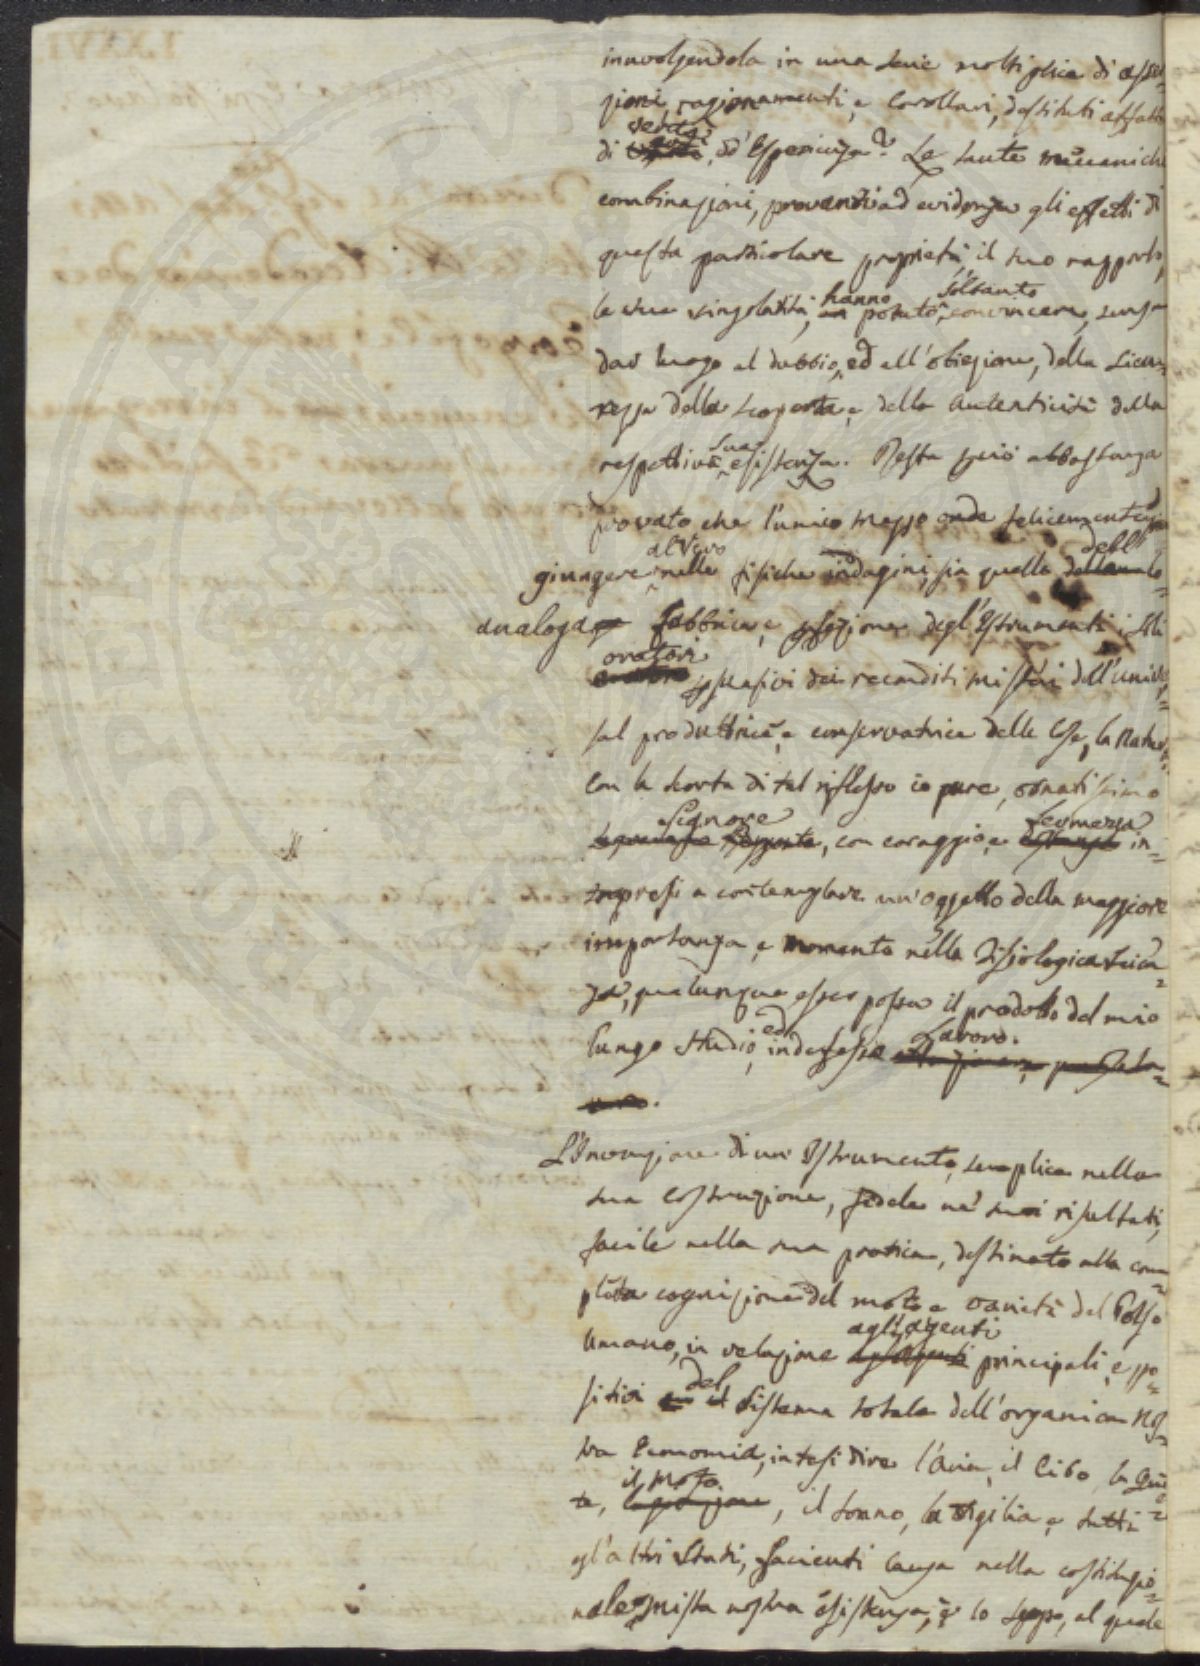 innvolgendola in una serie moltiplice di asser=
zioni, ragionamenti, e Corollari, destituti affatto
verità
di, ed'Esperienza? Le tante meccaniche
combinazioni, provanti ad evidenza gli effetti di
questa particolare proprietà il suo rapporto,
hanno soltanto
la sua singolarità, potuto convincere, senza
dar luogo al dubbio, ed all'obiezione, della sicu=
rezza della scoperta, e della autenticità della
sua
respettiva esistenza. Resta però abbastanza
provato che l'unico mezzo onde felicemente
al Vero dell'
giungere nelle fisiche indagini, sia quello
analoga fabbrica, e posizione degl'Istrumenti
oratori
persuasivi dei reconditi misteri dell'univer=
sal produttrice, e conservatrice delle Cose, la Natura.
Con la scorta di tal riflesso io pure, ornatissimo
Signore fermezza
, con coraggio, e in=
trapresi a contemplare un'oggetto della maggiore
importanza, e momento nella Fisiologica Scien=
za, qualunque esser possa il prodotto del mio
ed Lavoro.
lungo studio, indefesso
L'Invenzione di un Istrumento, semplice nella
sua Costruzione, fedele ne' suoi risultati,
facile nella sua pratica, destinato alla com=
pleta cognizione del moto e varietà del Polso
agl'agenti
Umano, in relazione principali, e po=
del
sitivi Sistema totale dell'organica Nos=
tra Economia, intesi dire l'Aria, il Cibo, la Quie=
il moto
te, , il sonno, la vigilia, e tutti
gl'altri Stati, facienti causa nella costituzio=
nale, mista nostra esistenza, è lo scopo, al quale